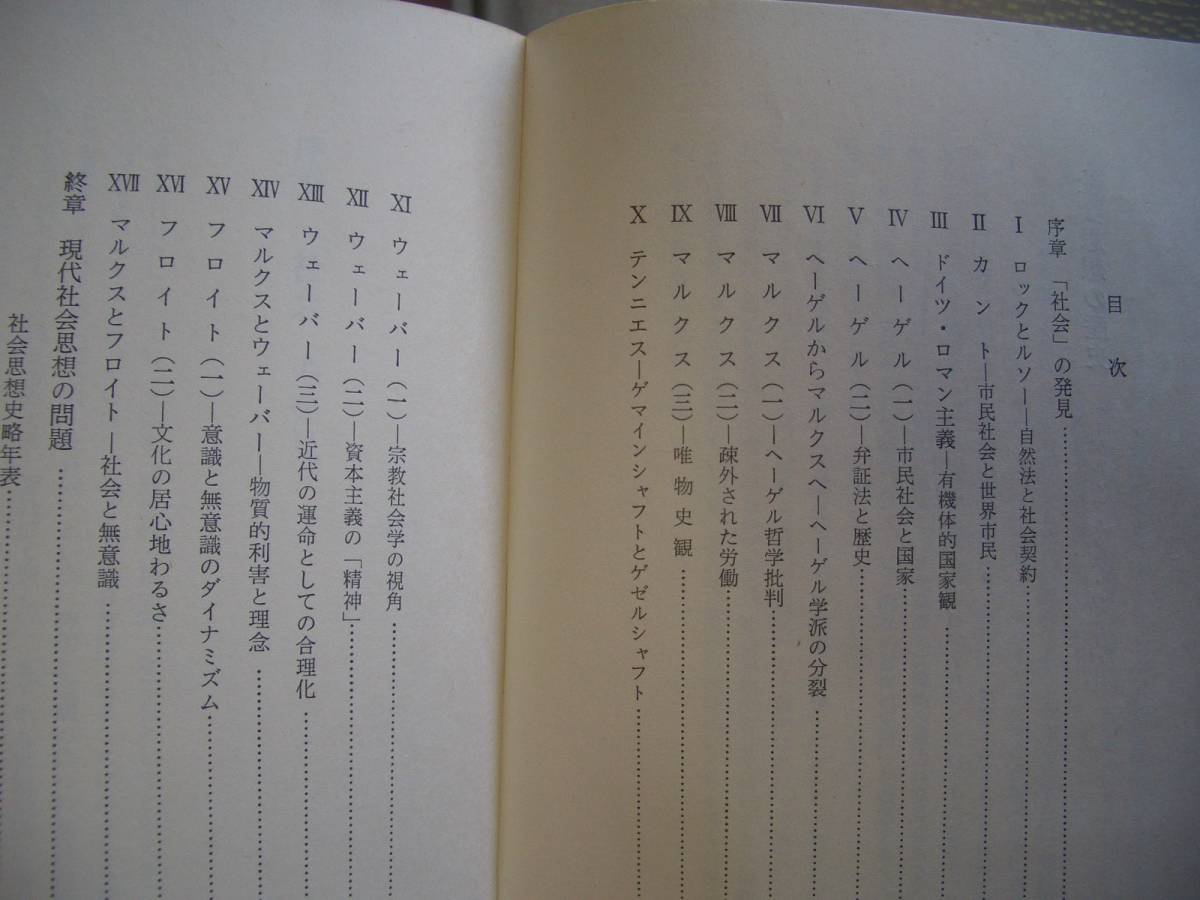 目次
序章 「社会」の発見……………………
Ⅰ ロックとルソー―自然法と社会契約……………………
Ⅱ カント―市民社会と世界市民……………………
Ⅲ ドイツ・ロマン主義―有機体的国家観……………………
Ⅳ ヘーゲル(一)―市民社会と国家……………………
Ⅴ ヘーゲル(二)―弁証法と歴史……………………
Ⅵ ヘーゲルからマルクスへ―ヘーゲル学派の分裂……………………
Ⅶ マルクス(一)―ヘーゲル哲学批判……………………
Ⅷ マルクス(二)―疎外された労働……………………
Ⅸ マルクス(三)―唯物史観……………………
Ⅹ テンニエス―ゲマインシャフトとゲゼルシャフト……………………
Ⅺ ウェーバー(一)―宗教社会学の視角……………………
Ⅻ ウェーバー(二)―資本主義の「精神」……………………
XIII ウェーバー(三)―近代の運命としての合理化……………………
XIV マルクスとウェーバー―物質的利害と理念……………………
XV フロイト(一)―意識と無意識のダイナミズム……………………
XVI フロイト(二)―文化の居心地わるさ……………………
XVII マルクスとフロイト―社会と無意識……………………
終章 現代社会思想の問題……………………
社会思想史略年表……………………